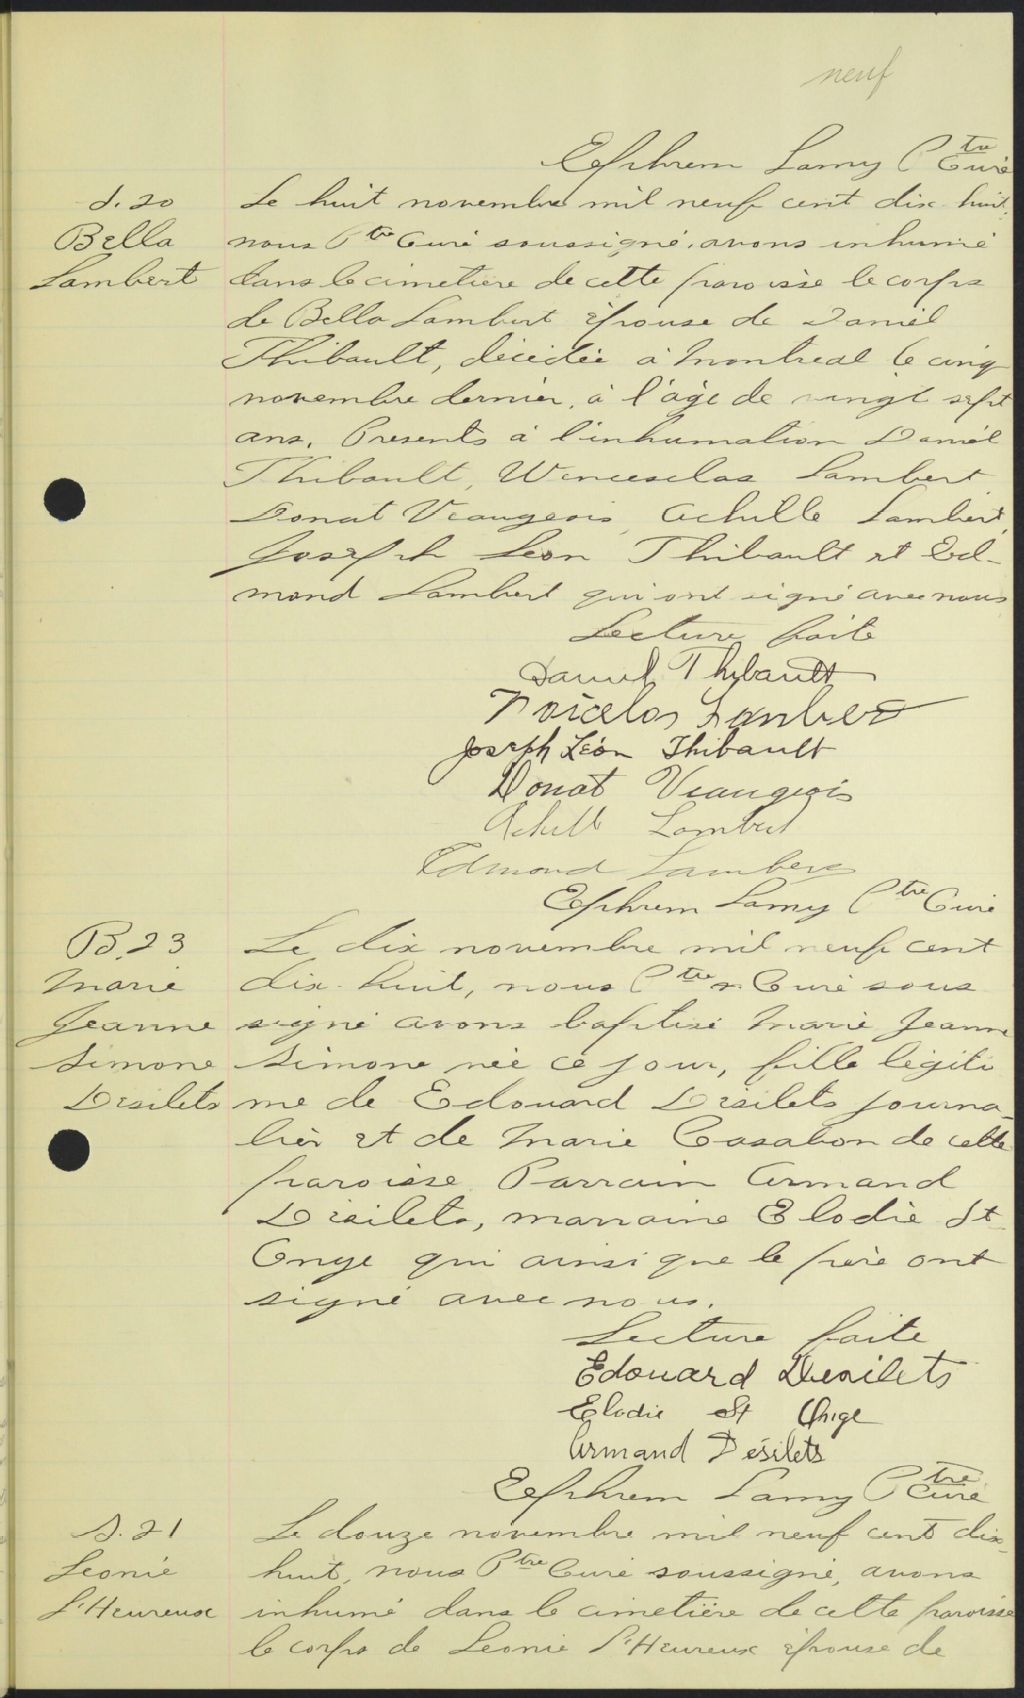 neuf
Ephrem Lamy Ptre Curé
S. 20
Bella
Lambert
Le huit novembre mil neuf cent dix-huit,
nous Ptre Curé soussigné, avons inhumé
dans le cimetière de cette paroisse le corps
de Bella Lambert épouse de Daniel
Thibault, décédée à Montreal le cinq
novembre dernier, à l'âge de vingt sept
ans. Presents à l'inhumation Daniel
Thibault, Wenceselas Lambert
Donat Veaugeois, Achille Lambert,
Joseph Leon Thibault et Ed-
mond Lambert qui ont signé avec nous
Lecture faite
Daniel Thibault
Lambert
Joseph Léon Thibault
Donat Veaugeois
Achille Lambert
Edmond Lambert
Ephrem Lamy Ptre Curé
B. 23
Marie
Jeanne
Simone
Désilets
Le dix novembre mil neuf cent
dix-huit, nous Ptre Curé sous
signé avons baptisé Marie Jeanne
Simone née ce jour, fille légiti
me de Edouard Désilets journa-
lier et de Marie Casabon de cette
paroisse. Parrain Armand
Désilets, marraine Elodie St
Onge qui ainsi que le père ont
signé avec nous.
Lecture faite
Edouard Desilets
Elodie St Onge
Armand Désilets
Ephrem Lamy Ptre Curé
S. 21
Leonie
L'Heureux
Le douze novembre mil neuf cent dix-
huit, nous Ptre Curé soussigné, avons
inhumé dans le cimetière de cette paroisse
le corps de Leonie L'Heureux épouse de